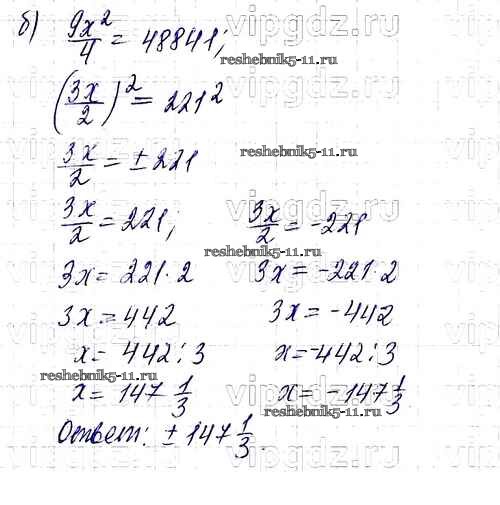 б) 9x²/4 = 48841;
(3x/2)² = 221²
3x/2 = ± 221
3x/2 = 221; 3x/2 = -221
3x = 221·2 3x = -221·2
3x = 442 3x = -442
x = 442:3 x = -442:3
x = 147 1/3 x = -147 1/3
Ответ: ± 147 1/3
vipgdz.ru
reshebnik5-11.ru
reshebnik5-11.ru
reshebnik5-11.ru
reshebnik5-11.ru
reshebnik5-11.ru